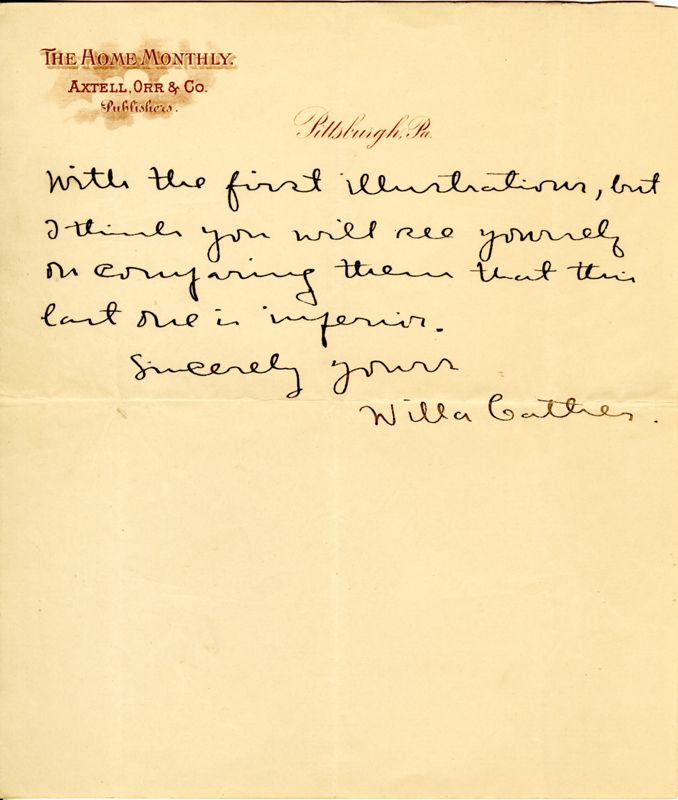 THE HOME MONTHLY.
AXTELL, ORR & CO.
Publishers.
Pittsburgh, Pa.
with the first illustrations, but
I think you will see yourself
on comparing them that this
last one is inferior.
Sincerely yours
Willa Cather.